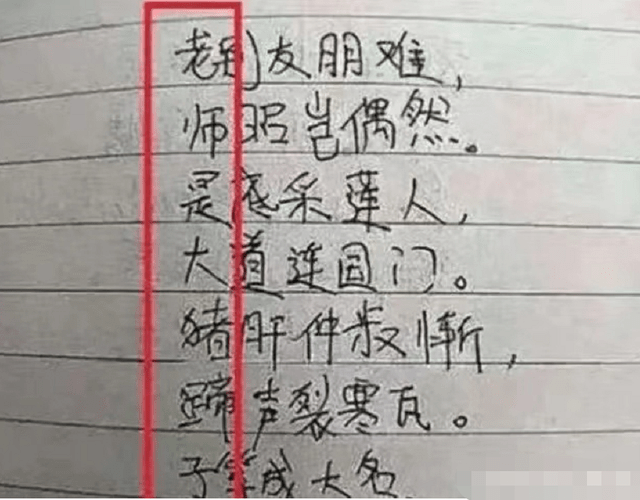 老到友朋难，
师昭岂偶然。
是底采莲人，
大道连国门。
猪肝仲叔惭，
蹄声裂寒瓦。
子等成大名